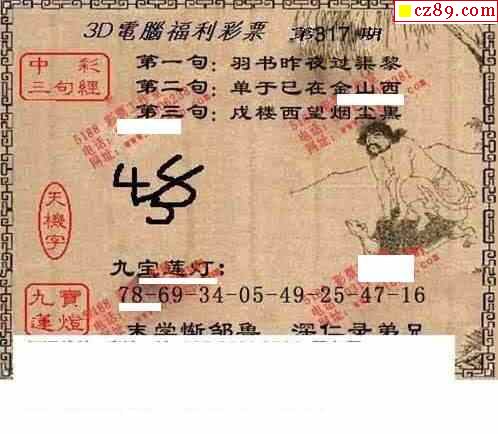 cz89.com
3D電腦福利彩票 第317期
中彩
三句經
第一句: 羽书昨夜过渠黎
第二句: 单于已在金山西
第三句: 戍楼西望烟尘黑
天機字
九宝莲灯:
九寶
蓮燈
78-69-34-05-49-25-47-16
末学惭邹鲁 深仁录弟兄